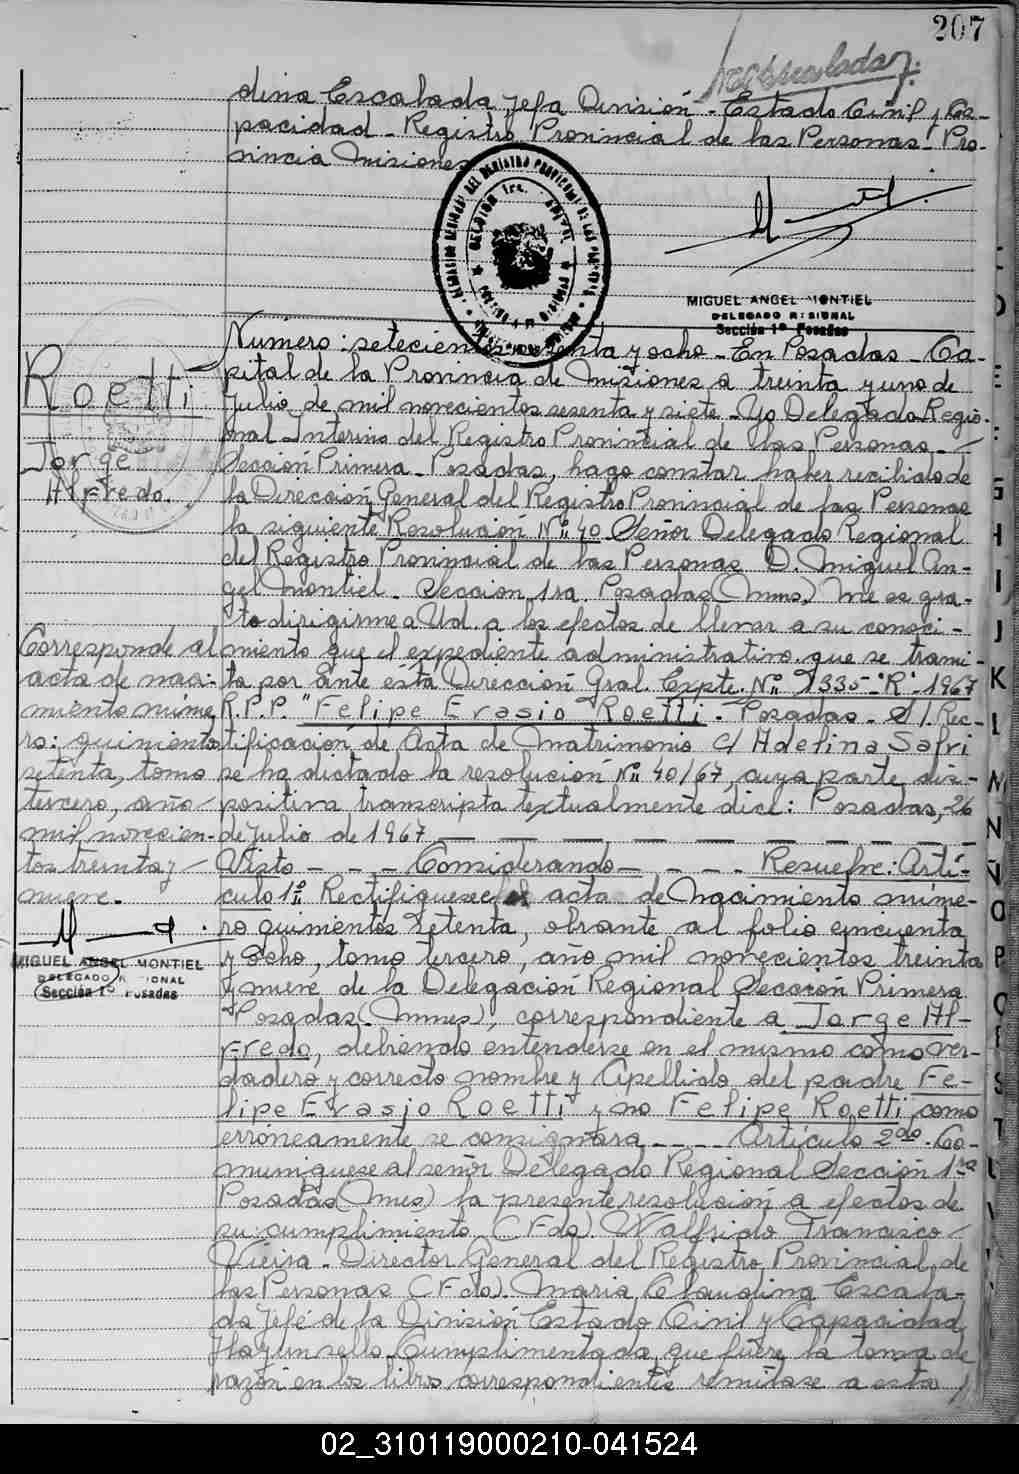 207
dina Escalada Jefa División - Estado Civil y Ca-
pacidad - Registro Provincial de las Personas - Pro-
vincia Misiones
MIGUEL ANGEL MONTIEL
DELEGADO REGIONAL
Sección 1º Posadas
Roetti
Jorge
Alfredo.
Corresponde al
acta de naci-
miento núme
ro: quinientos
setenta, tomo
tercero, año
mil novecien-
tos treinta y
nueve.
MIGUEL ANGEL MONTIEL
DELEGADO REGIONAL
Sección 1º Posadas
Número: setecientos ochenta y ocho - En Posadas - Ca-
pital de la Provincia de Misiones a treinta y uno de
Julio de mil novecientos sesenta y siete - Yo Delegado Regio-
nal Interino del Registro Provincial de las Personas -
Sección Primera - Posadas, hago constar haber recibido de
la Dirección General del Registro Provincial de las Personas
la siguiente Resolución Nº 40 Señor Delegado Regional
del Registro Provincial de las Personas D. Miguel An-
gel Montiel - Sección 1ra. Posadas (Mnes.) Me es gra-
to dirigirme a Ud. a los efectos de llevar a su conoci-
miento que el expediente administrativo que se trami-
ta por ante esta Dirección Gral. Expte. Nº 1335-"R"-1967
R.P.P. "Felipe Evasio Roetti - Posadas - S/. Rec-
tificación de Acta de Matrimonio c/ Adelina Salvi
se ha dictado la resolución Nº 40/67, cuya parte dis-
positiva transcripta textualmente dice: Posadas, 26
de Julio de 1967
Visto - - - Considerando - - - - Resuelve: Artí-
culo 1º Rectifiquese el acta de Nacimiento núme-
ro quinientos setenta, obrante al folio cincuenta
y ocho, tomo tercero, año mil novecientos treinta
y nueve de la Delegación Regional Sección Primera
Posadas (Mnes), correspondiente a Jorge Al-
fredo, debiendo entenderse en el mismo como ver-
dadero y correcto nombre y Apellido del padre Fe-
lipe Evasio Roetti y no Felipe Roetti como
erróneamente se consignara - - - - Artículo 2do. Co-
muniquese al señor Delegado Regional Sección 1ra
Posadas (Mnes) la presente resolución a efectos de
su cumplimiento (Fdo). Walfrido Francisco
Vieira - Director General del Registro Provincial de
las Personas (Fdo). Maria Claudina Escala-
da Jefe de la División Estado Civil y Capacidad
Hay un sello Cumplimentada que fuere la toma de
razón en los libros correspondientes remitase a esta
02_310119000210-041524